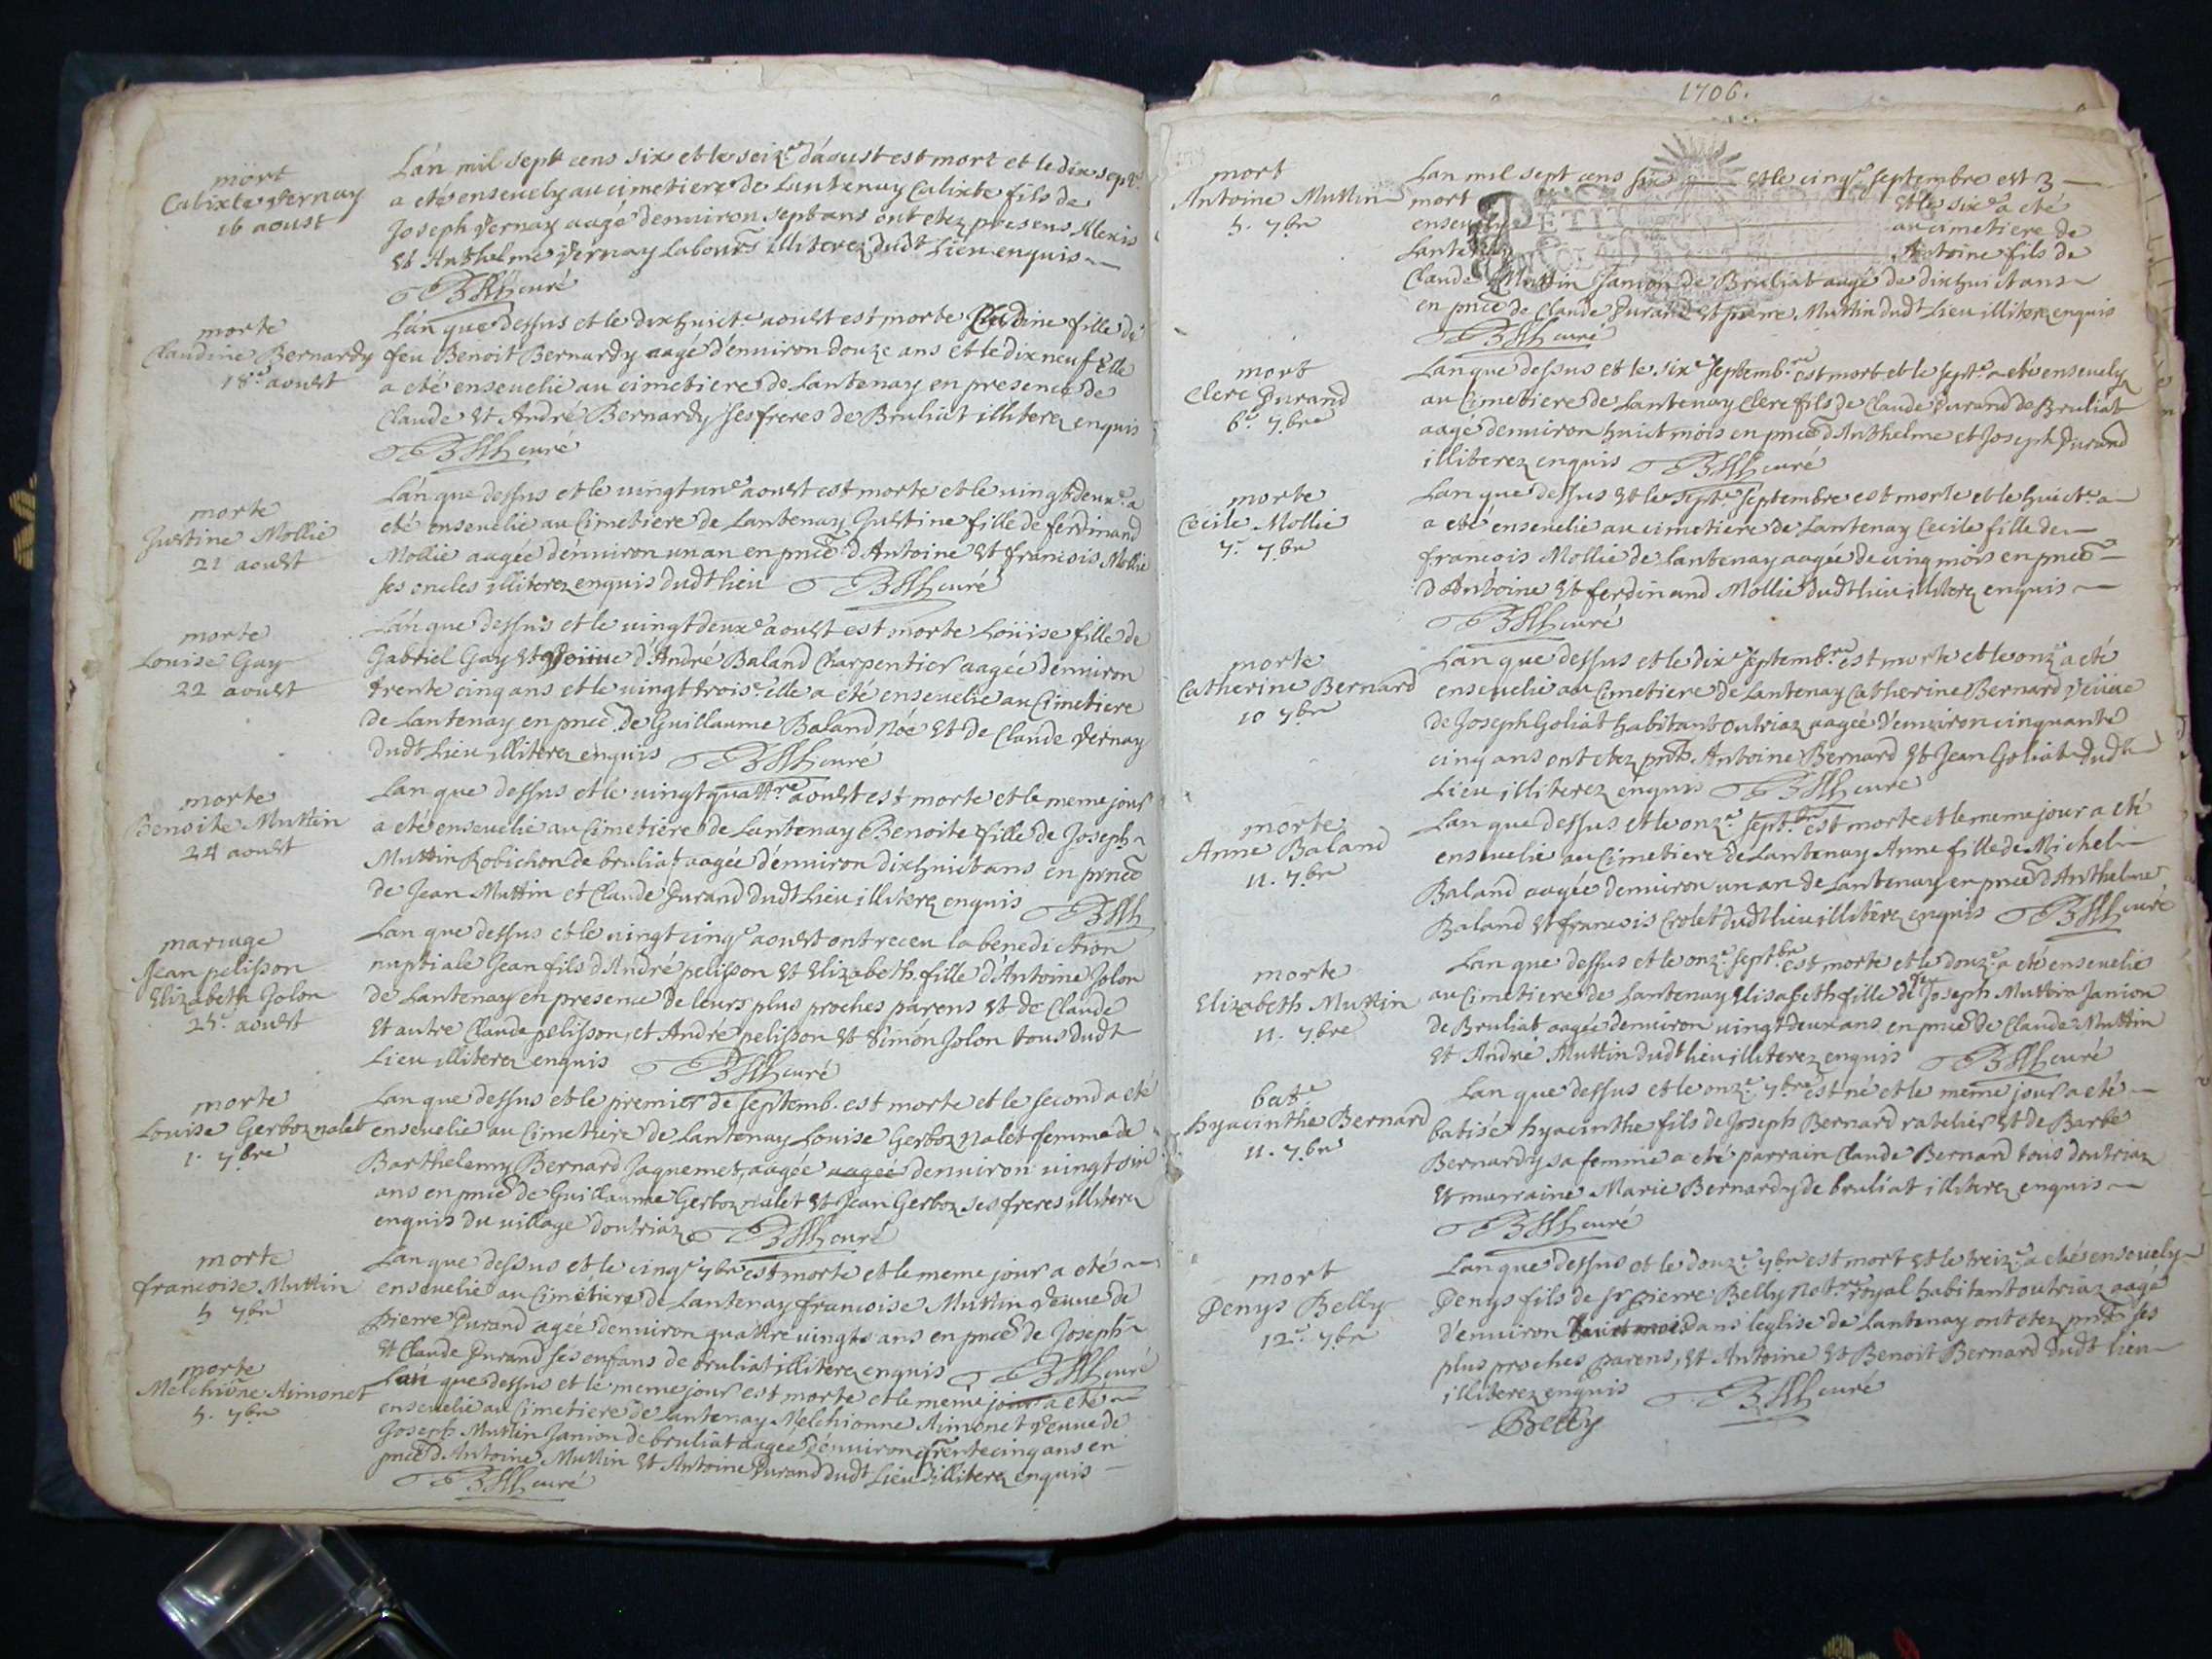 mort
Calixte Vernay
16 aoust
L'an mil sept cens six et le seize d'aoust est mort et le dix sept.e
a eté enseuely au cimetiere de Lantenay Calixte fils de
Joseph Vernay aagé d'enuiron sept ans ont etez presens Alexis
et Anthelme Vernay Labours illiterez dudt Lieu enquis
curé
morte
Claudine Bernardy
18.e aoust
L'an que dessus et le dix huict.e aoust est morte Cladine fille de
feu Benoit Bernardy aagé d'enuiron douze ans et le dix neuf elle
a eté enseuelie au cimetiere de Lantenay en presence de
Claude et André Bernardy ses freres de Bruliat illiterez enquis
curé
morte
Justine Mollie
21 aoust
L'an que dessus et le uingt un.e aoust est morte et le uingt deux.e a
eté enseuelie au Cimetiere de Lantenay Justine fille de ferdinand
Mollie aagée d'enuiron un an en pnce d'Antoine et francois Mollie
ses oncles illiterez enquis dudt lieu curé
morte
Louise Gay
22 aoust
L'an que dessus et le uingt deux.e aoust est morte Loüise fille de
Gabriel Gay et d'André Baland Charpentier aagée d'enuiron
trente cinq ans et le uingt trois.e elle a eté enseuelie au Cimetiere
de Lantenay en pnce de Guillaume Baland Noé et de Claude Vernay
dudt Lieu illiterez enquis curé
morte
Benoite Muttin
24 aoust
Lan que dessus et le uingt quattre aoust est morte et le meme jour
a eté enseuelie au Cimetiere de Lantenay Benoite fille de Joseph
Muttin Robichon de bruliat aagée d'enuiron dix huict ans en pnce
de Jean Muttin et Claude Durand dudt Lieu illiterez enquis
mariage
Jean pelisson
Elizabeth Jolon
25.e aoust
Lan que dessus et le uingt cinq.e aoust ont receu la benediction
nuptiale Jean fils d'André pelisson et Elizabeth fille d'Antoine Jolon
de Lantenay en presence de leurs plus proches parens et de Claude
et autre Claude pelisson, et André pelisson et Simon Jolon tous dudt
Lieu illiterez enquis curé
morte
Louise Gerboz nalet
1. 7bre
Lan que dessus et le premier de septemb. est morte et le second a eté
enseuelie au Cimetiere de Lantenay Louise Gerboz nalet femme de
Barthelemy Bernard Jaquemet, aagée aagée d'enuiron uingt six
ans en pnce de Guillaume Gerboz nalet et Jean Gerboz ses freres illiterez
enquis du uillage d'outriaz curé
morte
francoise Muttin
5 7bre
Lan que dessus et le cinq.e 7bre est morte et le meme jour a eté
enseuelie au Cimétiere de Lantenay francoise Muttin Veuue de
Pierre Durand agée d'enuiron quattre uingts ans en pnce de Joseph
et Claude Durand ses enfans de bruliat illiterez enquis curé
morte
Melchione Aimonet
5. 7bre
Lan que dessus et le meme jour est morte et le meme jour a eté
enseuelie au Cimetiere de Lantenay Melchionne Aimonet Veuue de
Joseph Muttin Janion de bruliat aagée d'enuiron trente cinq ans en
pnce d'Antoine Muttin et Antoine Durand dudt Lieu illiterez enquis
curé
1706.
mort
Antoine Muttin
5. 7bre
Lan mil sept cens six et le cinq.e septembre est
mort et le six.e a eté
enseuely au cimetiere de
Lantenay Antoine fils de
PETIT
Claude Muttin Janion de Bruliat aagé de dix huict ans
en pnce de Claude Durand et pierre Muttin dudt Lieu illiterez enquis
curé
mort
Clere Durand
6.e 7bre
Lan que dessus et le six.e septembre est mort et le sept.e a eté enseuely
au Cimetiere de Lantenay Clere fils de Claude Durand de Bruliat
aagé d'enuiron huict mois en pnce d'Anthelme et Joseph Durand
illiterez enquis curé
morte
Cécile Mollie
7. 7bre
Lan que dessus et le sept.e septembre est morte et le huict.e a
a eté enseuelie au cimetiere de Lantenay Cecile fille de
francois Mollie de Lantenay aagée de cinq mois en pnce
d'Antoine et ferdinand Mollie dudt lieu illiterez enquis
curé
morte
Catherine Bernard
10 7bre
Lan que dessus et le dix.e septembre est morte et le onz.e a eté
enseuelie au Cimetiere de Lantenay Catherine Bernard Veüue
de Joseph Goliat habitant outriaz aagée d'enuiron cinquante
cinq ans ont etez pnts Antoine Bernard et Jean Goliat dudt
Lieu illiterez enquis curé
morte
Anne Baland
11. 7bre
Lan que dessus et le onz.e sept.bre est morte et le meme jour a eté
enseuelie au Cimetiere de Lantenay Anne fille de Michel
Baland aagée d'enuiron un an de Lantenay en pnce d'Anthelme
Baland et francois Crolet dudt lieu illiterez enquis curé
morte
Elizabeth Muttin
11. 7bre
Lan que dessus et le onz.e sept.bre est morte et le douz.e a eté enseuelie
au Cimetiere de Lantenay Elisabeth fille de feu Joseph Muttin Janion
de Bruliat aagée d'enuiron uingt deux ans en pnce de Claude Muttin
et André Muttin dudt lieu illiterez enquis curé
bat.e
hyacinthe Bernard
11. 7bre
Lan que dessus et le onz.e 7bre est né et le meme jour a eté
batisé hyacinthe fils de Joseph Bernard ratelier et de Barbe
Bernardy sa femme a eté parrain Claude Bernard tous d'outriaz
et marraine Marie Bernardy de bruliat illiterez enquis
curé
mort
Denys Belly
12.e 7bre
Lan que dessus et le douz.e 7bre est mort et le treiz.e a eté enseuely
Denys fils de sr pierre Belly not.re royal habitant outriaz aagé
d'enuiron huict mois dans leglise de Lantenay ont etez pnts ses
plus proches parens, et Antoine et Benoit Bernard dudt lieu
illiterez enquis curé
Belly